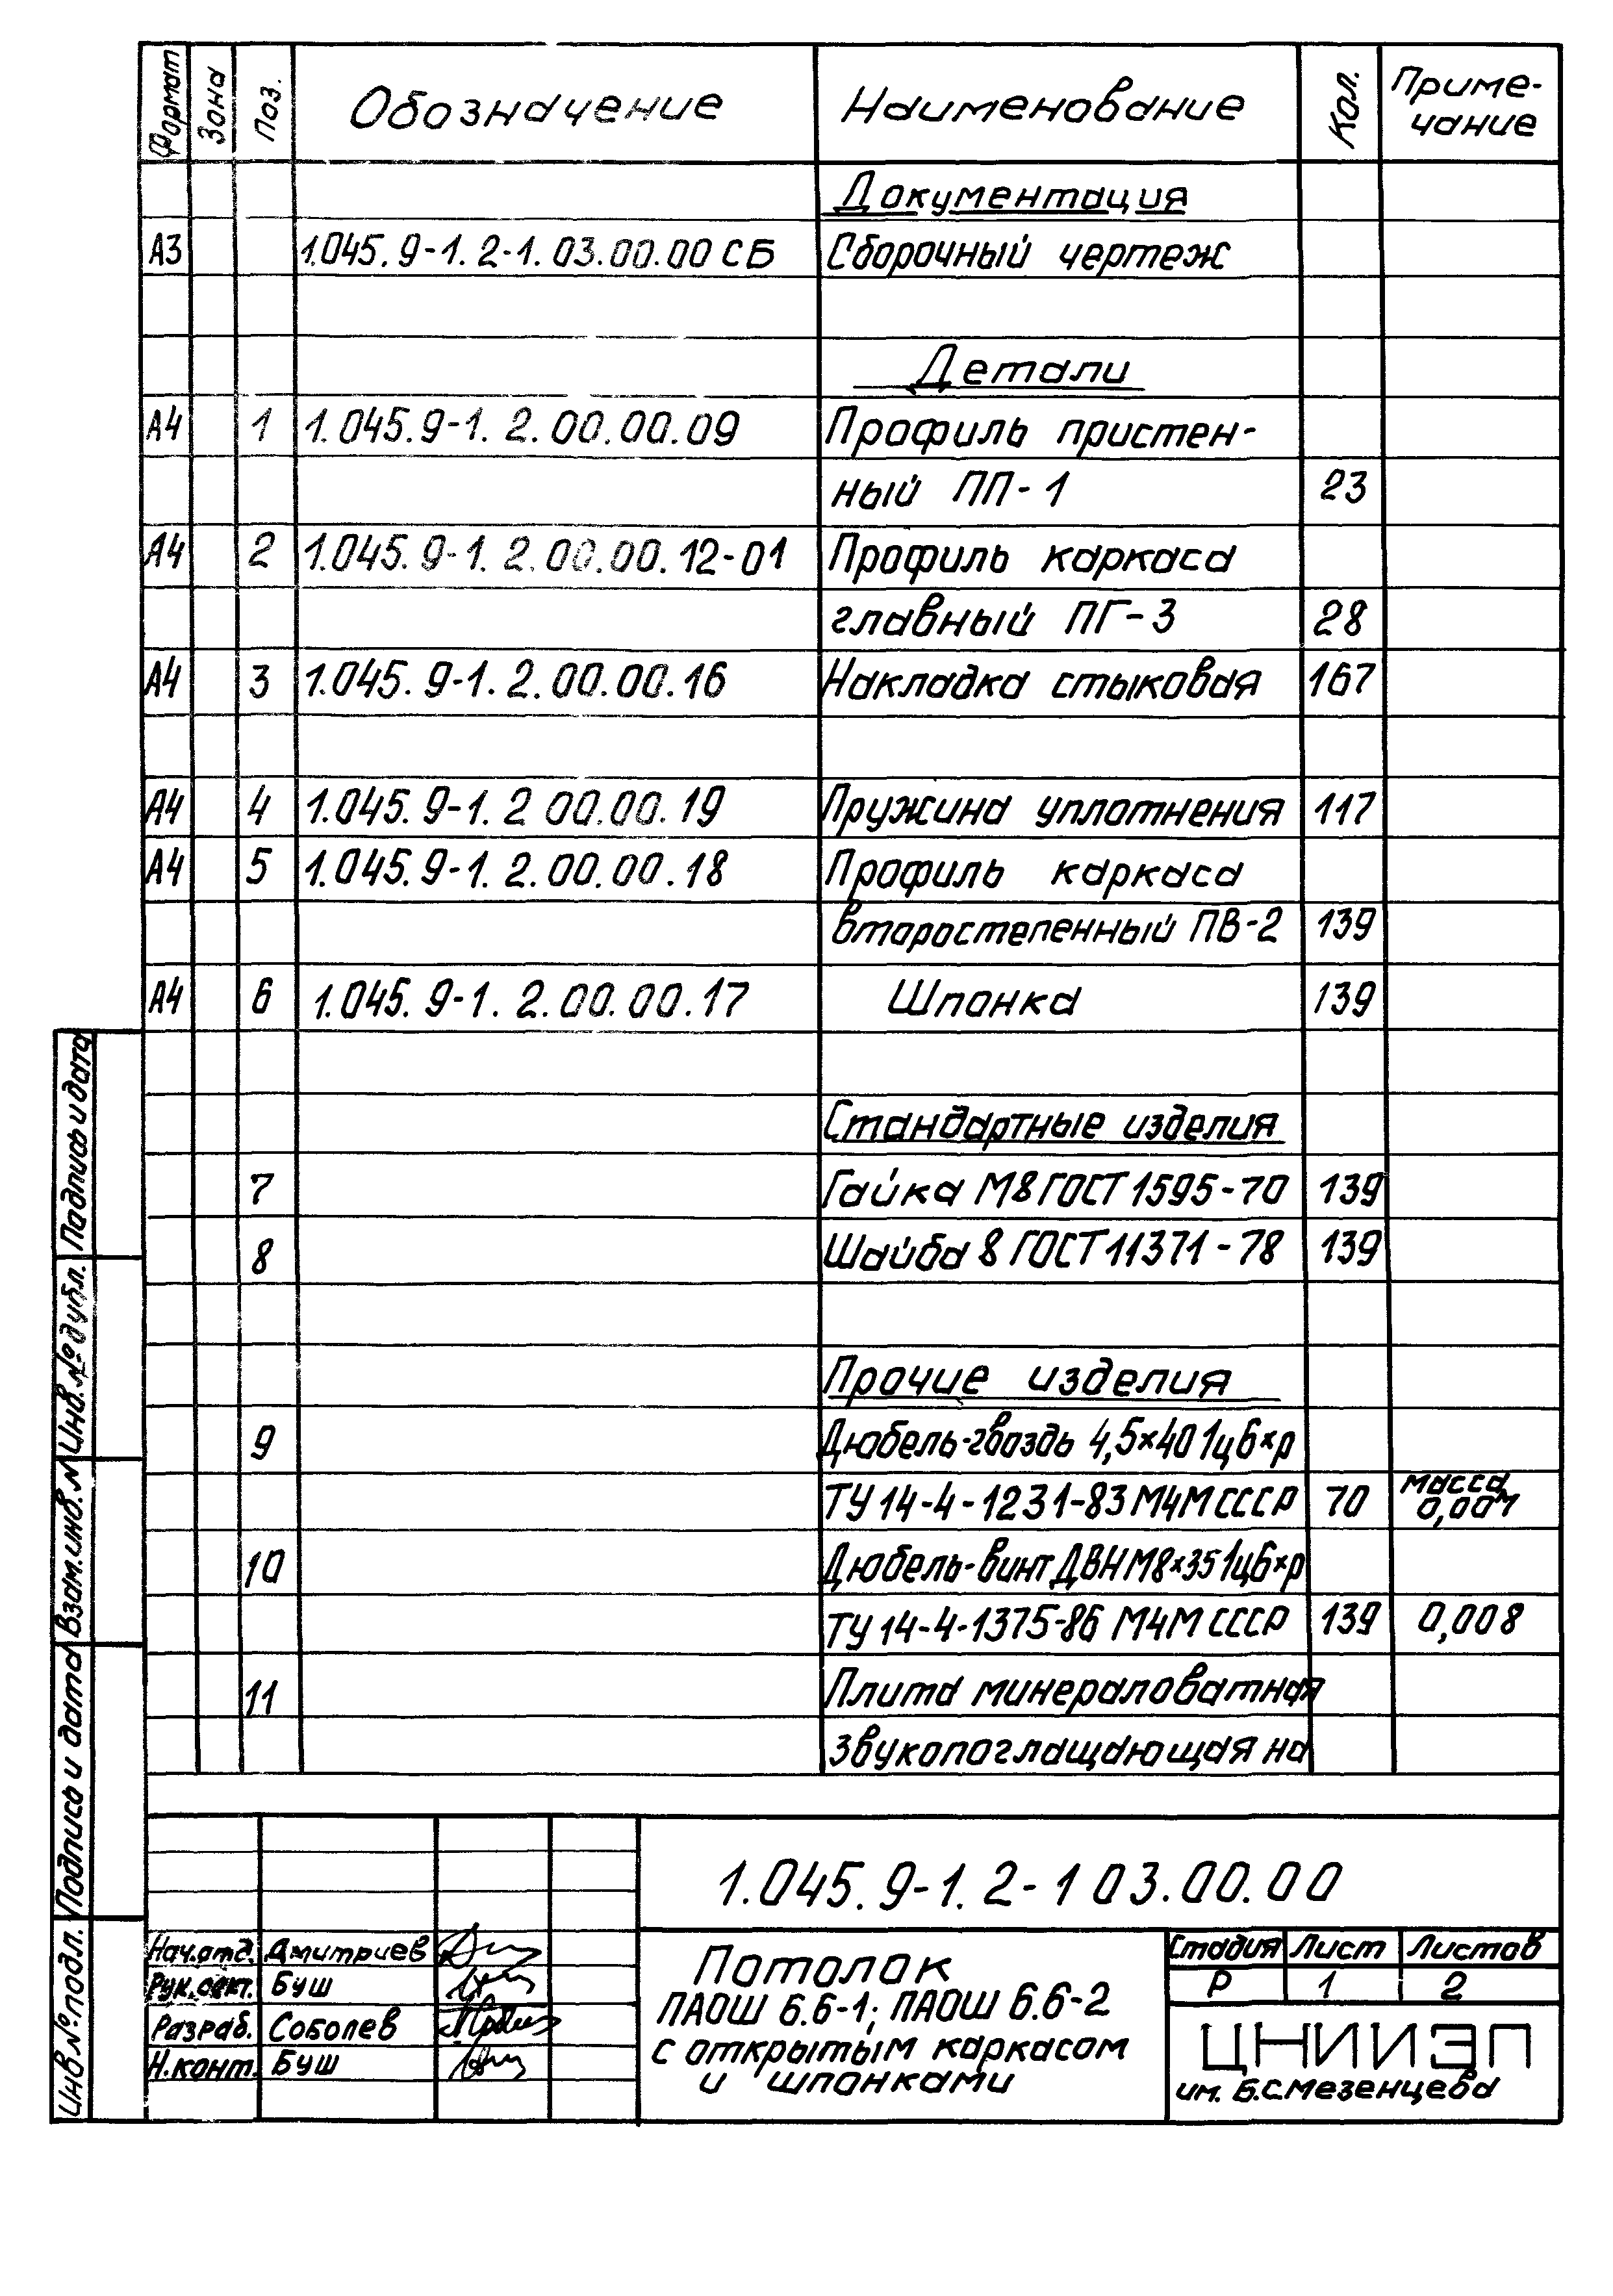 Формат Зона Поз. Обозначение Наименование Кол. Приме-
чание
Документация
А3 1.045.9-1.2-1.03.00.00 СБ Сборочный чертеж
Детали
А4 1 1.045.9-1.2.00.00.09 Профиль пристен-
ный ПП-1 23
А4 2 1.045.9-1.2.00.00.12-01 Профиль каркаса
главный ПГ-3 28
А4 3 1.045.9-1.2.00.00.16 Накладка стыковая 167
А4 4 1.045.9-1.2 00.00.19 Пружина уплотнения 117
А4 5 1.045.9-1.2.00.00.18 Профиль каркаса
второстепенный ПВ-2 139
А4 6 1.045.9-1.2.00.00.17 Шпонка 139
Стандартные изделия
7 Гайка М8 ГОСТ 1595-70 139
8 Шайба 8 ГОСТ 11371-78 139
Прочие изделия
9 Дюбель-гвоздь 4,5×40 1ц6×р
ТУ 14-4-1231-83 МЧМ СССР 70 масса 0,004
10 Дюбель-винт ДВН М8×35 1ц6×р
ТУ 14-4-1375-86 МЧМ СССР 139 0,008
11 Плита минераловатная
звукопоглащающая на
Инв № подл. Подпись и дата Взам.инв.№ Инв.№ дубл. Подпись и дата
1.045.9-1.2-1 03.00.00
Нач.отд. Дмитриев
Рук.сект. Буш
Разраб. Соболев
Н.конт. Буш
Потолок
ПАОШ 6.6-1; ПАОШ 6.6-2
с открытым каркасом
и шпонками
Стадия Лист Листов
Р 1 2
ЦНИИЭП
им. Б.С.Мезенцева